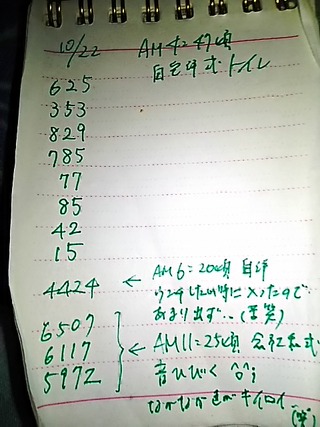 10/22 AM4:47頃
自宅洋式トイレ
625
353
829
785
77
85
42
15
4424 ← AM6:20頃 自洋
ウンチしたい時に入ったので
あまり出ず…(苦笑)
6507
6117 ← AM11:25頃 会社和式
5972 音ひびく ^^;
なかなか色がキイロイ
(笑)